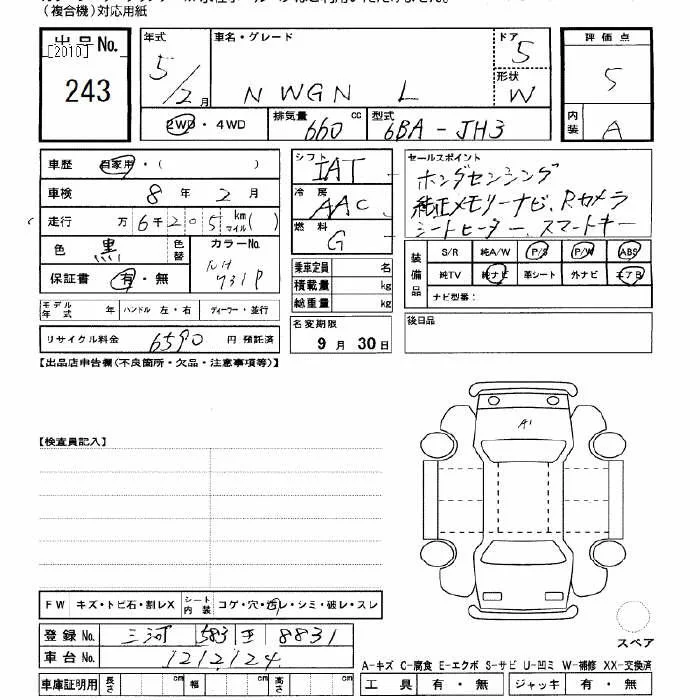 (複合機)対応用紙
出品No. 年式 車名・グレード ドア 評価点
[2010] 5/2月 N WGN L 5 5
243 形状 W
2WD・4WD 排気量 660 cc 型式 6BA-JH3 内装 A
車歴 自家用・( ) シフト IAT セールスポイント
車検 8年 2月 冷房 AAC ホンダセンシング
走行 万6千205km マイル( ) 純正メモリーナビ、Rカメラ
シートヒーター、スマートキー
色 黒 色替 カラーNo. NH731P 燃料 G
保証書 有・無 乗車定員 名
積載量 kg
総重量 kg
装備品 S/R 純A/W P/S P/W ABS
純TV 純ナビ 革シート 外ナビ エアB
ナビ型番:
モデル年式 年 ハンドル 左・右 ディーラー・並行
名変期限 9月30日 後日品
リサイクル料金 6590 円 預託済
【出品店申告欄(不良箇所・欠品・注意事項等)】
A1
【検査員記入】
FW キズ・トビ石・割レX シート内装 コゲ・穴・透レ・シミ・破レ・スレ
登録No. 三河 583 8831
スペア
車台No. 1212124
A-キズ C-腐食 E-エクボ S-サビ U-凹ミ W-補修 XX-交換済
車庫証明用 長さ cm 幅 cm 高さ cm 工具 有・無 ジャッキ 有・無